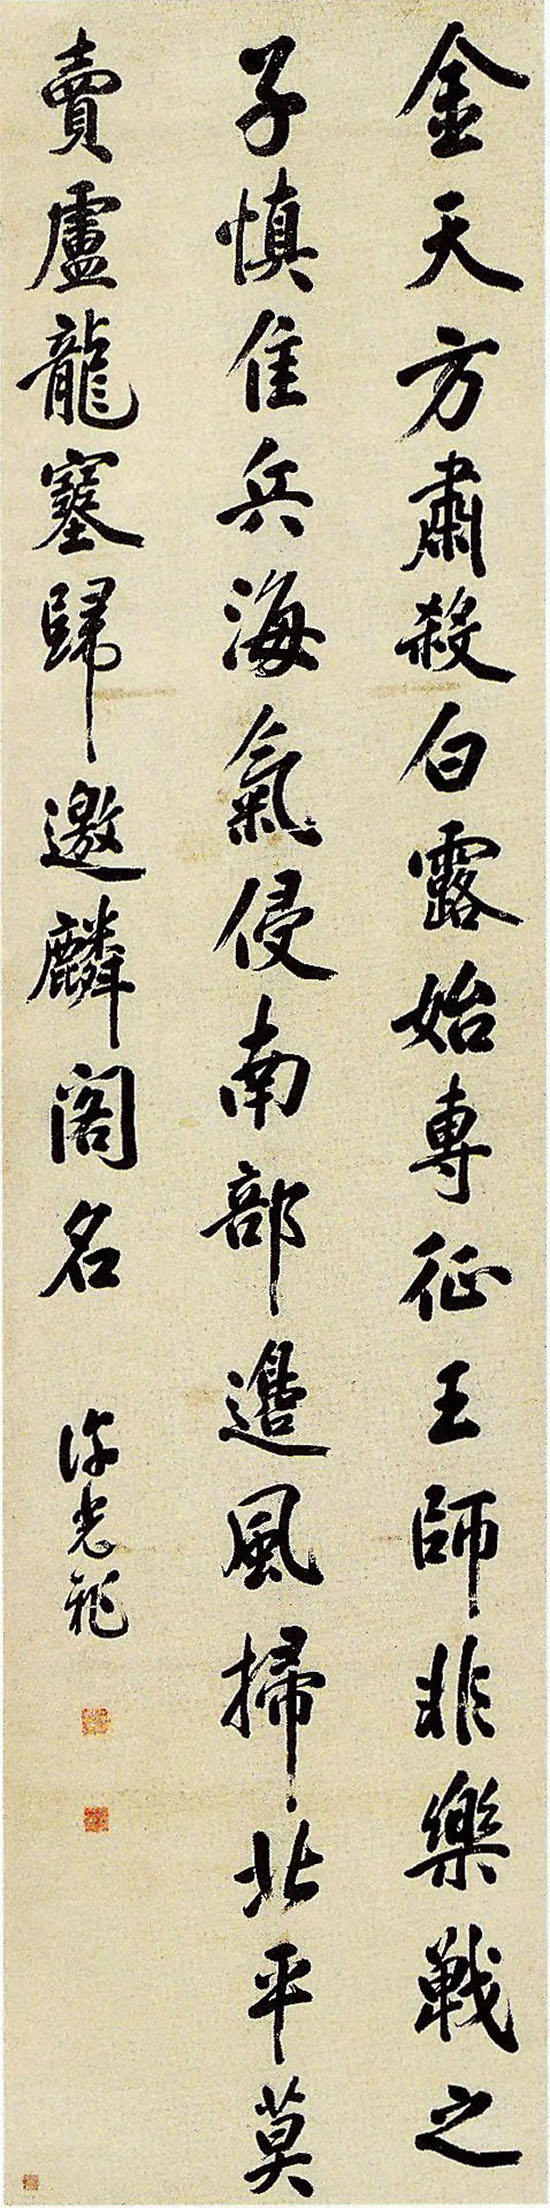 金天方肅殺白露始專征王師非樂戰之
子慎隹兵海氣侵南部邊風掃北平莫
賣盧龍塞歸邀麟閣名
許光祚